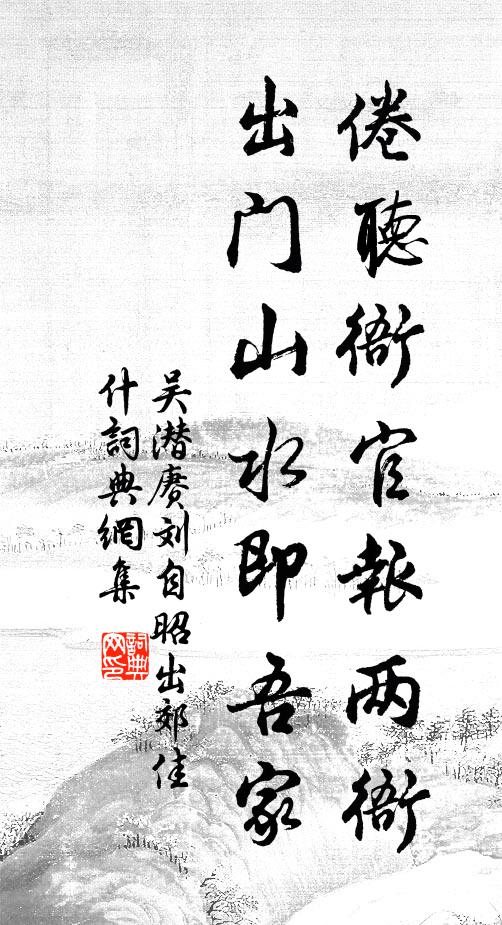 倦聽衙官報两衙
出门山水即吾家
吴潜赓刘自昭出郊佳
什詞典網集
詞典
网印